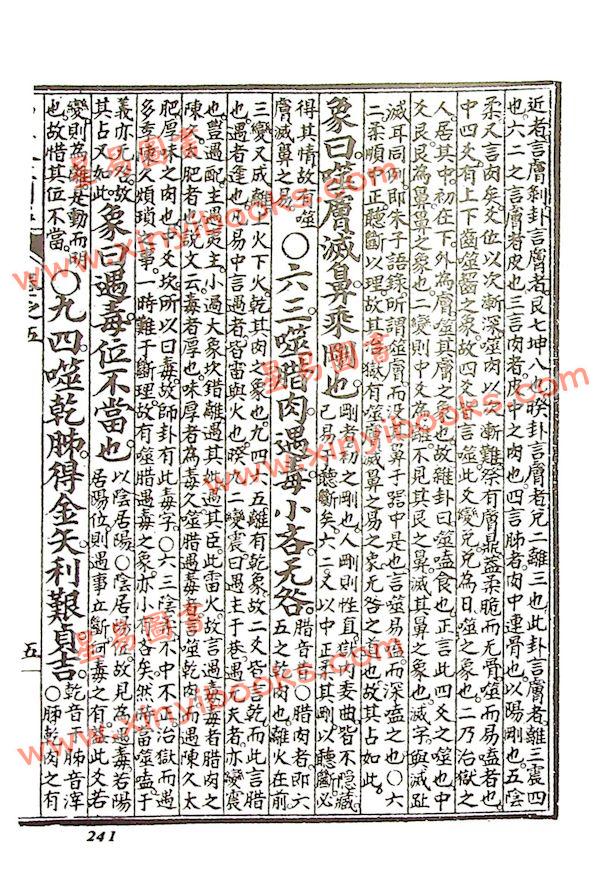 近者言膚剝卦言膚者艮七坤八也睽卦言膚者兌二離三也此卦言膚者離三震四
也六二之言膚者皮也三言肉者皮中之肉也四言胏者肉中連骨也以陽剛也五陰
柔又言肉矣爻位以次漸深噬肉以次漸難祭有膚鼎蓋柔脆而无骨噬而易嗑者也
中四爻有上下齒噬齧之象故四爻皆言噬此爻變兌兌為口噬之象也二乃治獄之
人居其中初在下外為膚噬其膚之象也故雜卦曰噬嗑食也正言此四爻之噬也中
爻艮艮為鼻鼻之象也二變則中爻為離不見其艮之鼻滅其鼻之象也滅字與滅趾
滅耳同例即朱子語錄所謂噬膚而沒其鼻于器中是也言噬易嗑而深嗑之也○六
二柔順中正聽斷以理故其治獄有噬膚滅鼻之易之象无咎之道也故其占如此
象曰噬膚滅鼻乘剛也 剛者初之剛也人剛則性直獄內委曲皆不隱藏已易于聽斷矣六二又以中正柔其剛以聽斷必
得其情故有噬膚滅鼻之易 ○六三噬腊肉遇毒小吝无咎 腊音昔○腊肉者即六五之乾肉也離火在前
三變又成離上火下火乾其肉之象也九四六五離有乾象故二爻皆言乾而此言腊
也遇者逢也凡易中言遇者皆雷與火也睽九二變震曰遇主于巷遇元夫者亦變震
也豐遇配主遇夷主小過大象坎錯離遇其妣遇其臣此雷火故言遇毒毒者腊肉之
陳久太肥者也說文云毒者厚也味厚者為毒久噬腊遇毒者言噬乾肉而遇陳久太
肥厚味之肉也中爻坎所以曰毒故師卦有此毒字○六三陰柔不中不正治獄而遇
多年陳久煩瑣之事一時難于斷理故有噬腊遇毒之象亦小吝矣然時當噬嗑于
義亦无咎故其占又如此 象曰遇毒位不當也 以陰居陽○陰居陽位故見為遇毒若陽居陽位則遇事立斷何毒之有蓋此爻若
變則為離是動而明也故惜其位不當 ○九四噬乾胏得金矢利艱貞吉 乾音干胏音滓○胏乾肉之有
五
241
星易圖書
www.xinyibooks.com